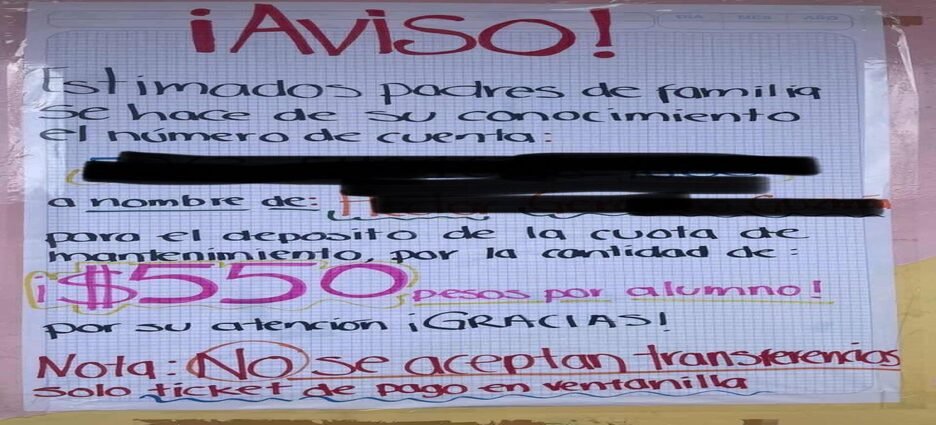 DÍA MES AÑO
¡AVISO!
Estimados padres de familia
se hace de su conocimiento
el número de cuenta:
a nombre de:
para el deposito de la cuota de
mantenimiento, por la cantidad de:
¡$550 pesos por alumno!
por su atención ¡GRACIAS!
Nota: NO se aceptan transferencias
solo ticket de pago en ventanilla